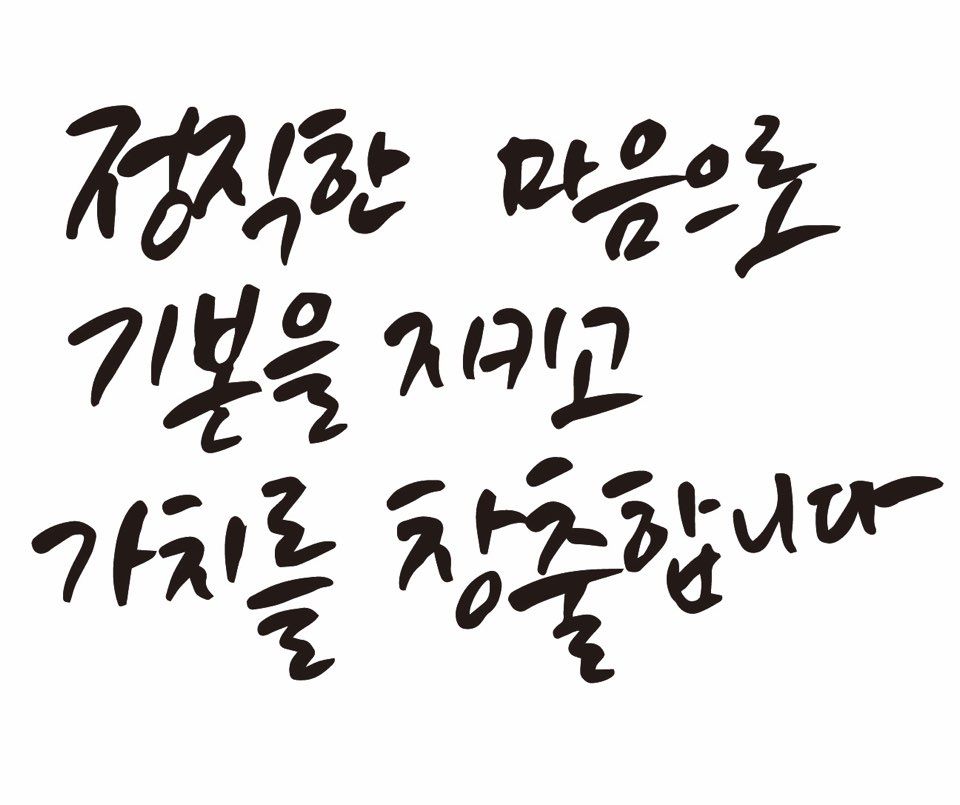 정직한 마음으로
기본을 지키고
가치를 창출합니다